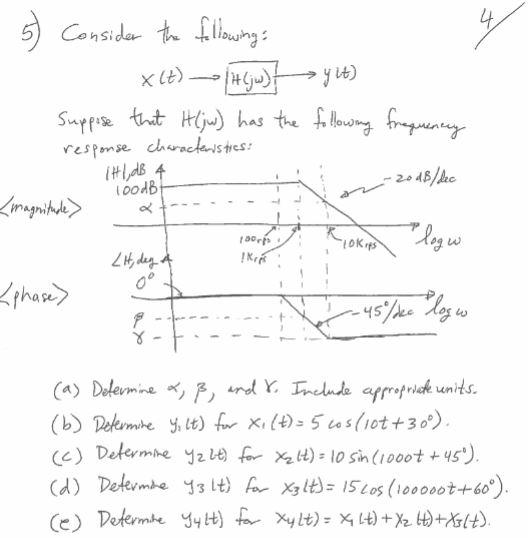 4/
5) Consider the following:
x(t) → H(jω) → y(t)
Suppose that H(jω) has the following frequency
response characteristics:
|H|,dB
100dB
-20dB/dec
<magnitude>
α
100rps
1Krps
10Krps
log ω
∠H,deg
0°
<phase>
-45°/dec
log ω
β
γ
(a) Determine α, β, and γ. Include appropriate units.
(b) Determine y₁(t) for x₁(t) = 5 cos(10t+30°).
(c) Determine y₂(t) for x₂(t) = 10 sin(1000t+45°).
(d) Determine y₃(t) for x₃(t) = 15 cos(100000t+60°).
(e) Determine y₄(t) for x₄(t) = x₁(t)+x₂(t)+x₃(t).